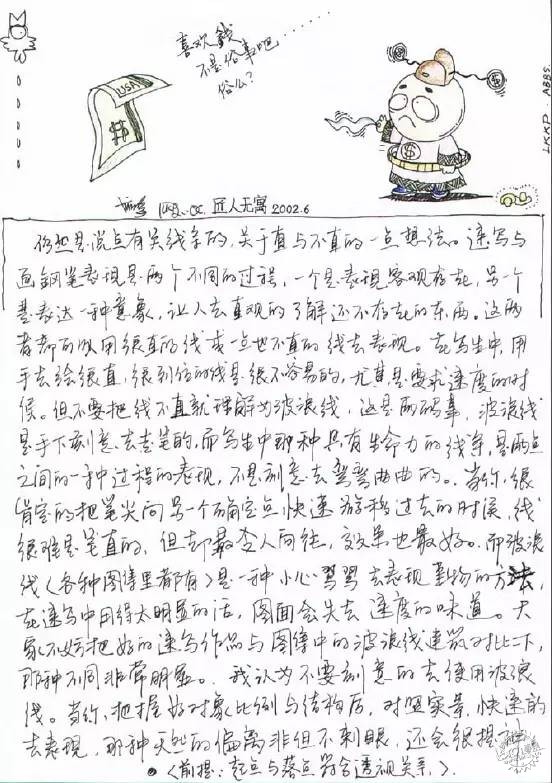 喜欢钱
不是俗事吧
俗么?
USA
$
$
LKKP. ABBS.
匠人无寓 2002.6
仍然是说点有关线条的,关于直与不直的一点想法。速写与
画钢笔表现是两个不同的过程,一个是表现客观存在,另一个
是表达一种意象,让人去直观的了解还不存在的东西。这两
者都可以用很直的线或一点也不直的线去表现。在写生中,用
手去绘很直,很到位的线是很不容易的,尤其是要求速度的时
候。但不要把线不直就理解为波浪线,这是两码事,波浪线
是手下刻意去走笔的,而写生中那种具有生命力的线条,是两点
之间的一种过程的表现,不是刻意去弯弯曲曲的。当你很
肯定的把笔尖向另一个确定点快速游移过去的时候,线
很难是笔直的,但却最令人向往,效果也最好。而波浪
线(各种图绩里都有)是一种小心翼翼去表现事物的方法,
在速写中用得太明显的话,图面会失去速度的味道。大
家不妨把好的速写作品与图绩中的波浪线建筑对比一下,
那种不同非常明显。我认为不要刻意的去使用波浪
线。当你把握好对象比例与结构后,对照实景,快速的
去表现,那种天然的偏离非但不刺眼,还会很提
(前提:起点与落点符合透视关系)